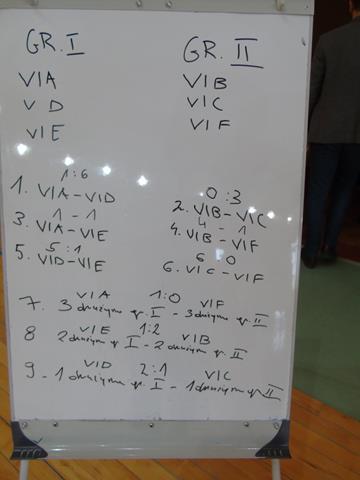 GR. I GR. II
VIA VIB
VD VIC
VIE VIF
1:6
1. VIA - VID
0:3
2. VIB - VIC
1 - 1
3. VIA - VIE
4 - 1
4. VIB - VIF
5:1
5. VID - VIE
6 0
6. VIC - VIF
VIA 1:0 VIF
7. 3 drużyna gr. I - 3 drużyna gr. II
VIE 1:2 VIB
8 2 drużyna gr I - 2 drużyna gr II
VID 2:1 VIC
9 - 1 drużyna gr. I - 1 drużyna gr II